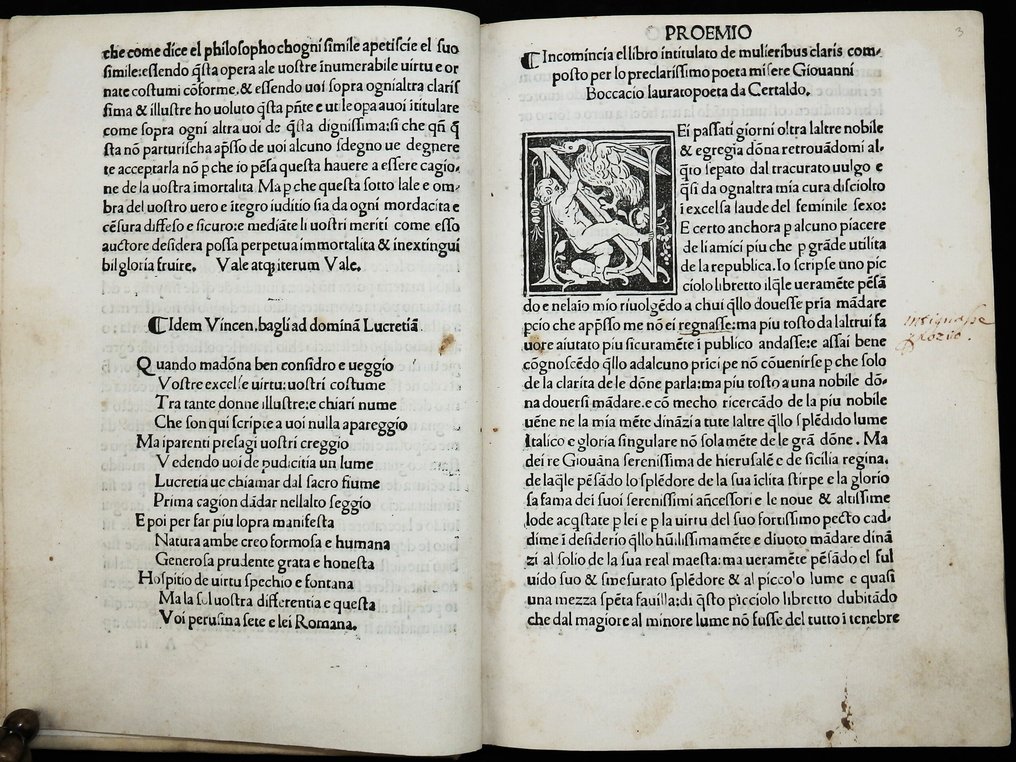 che come dice el philosopho chogni simile apetiscie el suo
simile: essendo q̃sta opera ale uostre inumerabile uirtu e or
nate costumi cõforme, & essendo uoi sopra ognialtra clariſ
sima & illustre ho uoluto q̃sta pñte e utile opa a uoi ititulare
come sopra ogni altra uoi de q̃sta dignissima: si che qñ q̃
sta nõ parturischa ap̃so de uoi alcuno sdegno ue degnere
te acceptarla nõ p che io pẽsa questa hauere a essere cagio,
ne de la uostra imortalita Ma p che questa sotto lale e om,
bra del uostro uero e ĩtegro iuditio sia da ogni mordacita e
cẽsura diffeso e sicuro: e mediãte li uostri meriti come esso
auctore desidera possa perpetua immortalita & inextingui
bil gloria fruire. Vale atq; iterum Vale.
⁋Idem Vincen. bagli ad dominã Lucretiã
Quando madõna ben considro e ueggio
Vostre excelse uirtu: uostri costume
Tra tante donne illustre: e chiari nume
Che son qui scripte a uoi nulla apareggio
Ma iparenti presagi uostri creggio
Vedendo uoi de pudicitia un lume
Lucretia ue chiamar dal sacro fiume
Prima cagion dãdar nellalto seggio
E poi per far piu lopra manifesta
Natura ambe creo formosa e humana
Generosa prudente grata e honesta
Hospitio de uirtu spechio e fontana
Ma la sol uostra differentia e questa
Voi perusina sete e lei Romana.
PROEMIO
3
⁋Incomincia el libro intitulato de mulieribus claris com,
posto per lo preclarissimo poeta misere Giouanni
Boccacio laurato poeta da Certaldo.
N
Ei passati giorni oltra laltre nobile
& egregia dõna retrouãdomi al,
q̃to sepato dal tracurato uulgo e
q̃si da ognaltra mia cura disciolto
i excelsa laude del feminile sexo:
E certo anchora p alcuno piacere
de li amici piu che p grãde utilita
de la republica. Io scripse uno pic
ciolo libretto ilq̃le ueramẽte pẽsã
do e nelaĩo mio riuolgẽdo a chui q̃llo douesse pria mãdare
pcio che app̃sso me nõ ei regnasse: ma piu tosto da laltrui fa
uore aiutato piu sicuramẽte i publico andasse: e assai bene
cõgnoscẽdo q̃llo adalcuno pricipe nõ cõuenirse p che solo
de la clarita de le dõne parla: ma piu tosto a una nobile dõ,
na douersi mãdare. e cõ mecho ricercãdo de la piu nobile
uẽne ne la mia mẽte dinãzi a tute laltre q̃llo splẽdido lume
Italico e gloria singulare nõ solamẽte de le grã dõne. Ma
dei re Giouãna serenissima de hierusalẽ e de sicilia regina.
de laq̃le pẽsãdo lo splẽdore de la sua iclita stirpe e la glorio
sa fama dei suoi serenissimi ãncessori e le noue & altissime
lode acq̃state p lei e p la uirtu del suo fortissimo pecto cad,
dime ĩ desiderio q̃llo hũilissimamẽte e diuoto mãdare dinã
zi al solio de la sua real maesta: ma ueramẽte pẽsãdo el ful
uido suo & smesurato splẽdore & al piccolo lume e quasi
una mezza spẽta fauilla: di q̃sto picciolo libretto dubitãdo
che dal magiore al minore lume nõ fusse del tutto i tenebre